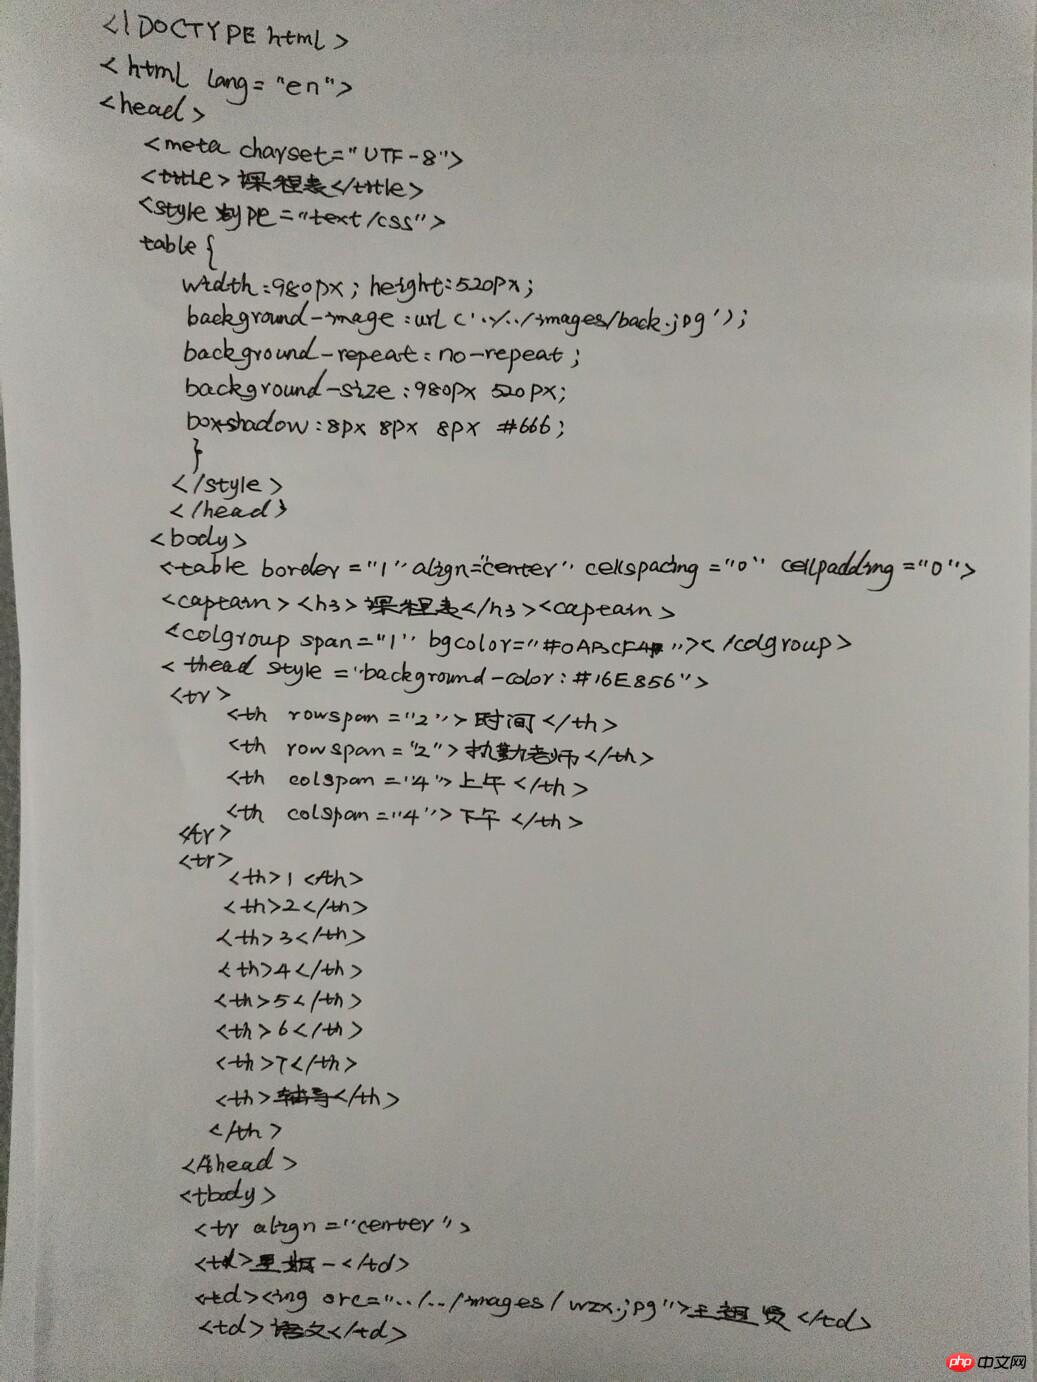 <!DOCTYPE html>
<html lang="en">
<head>
<meta charset="UTF-8">
<title>课程表</title>
<style type="text/css">
table{
width:980px; height:520px;
background-image:url('../../images/back.jpg');
background-repeat:no-repeat;
background-size:980px 520px;
box-shadow:8px 8px 8px #666;
}
</style>
</head>
<body>
<table border="1" align="center" cellspacing="0" cellpadding="0">
<captain><h3>课程表</h3><captain>
<colgroup span="1" bgcolor="#0ABCF4"></colgroup>
<thead style="background-color:#16E856">
<tr>
<th rowspan="2">时间</th>
<th rowspan="2">执勤老师</th>
<th colspan="4">上午</th>
<th colspan="4">下午</th>
</tr>
<tr>
<th>1</th>
<th>2</th>
<th>3</th>
<th>4</th>
<th>5</th>
<th>6</th>
<th>7</th>
<th>辅导</th>
</th>
</thead>
<tbody>
<tr align="center">
<td>星期一</td>
<td><img src="../../images/wzx.jpg">王祖贤</td>
<td>语文</td>
php中文网